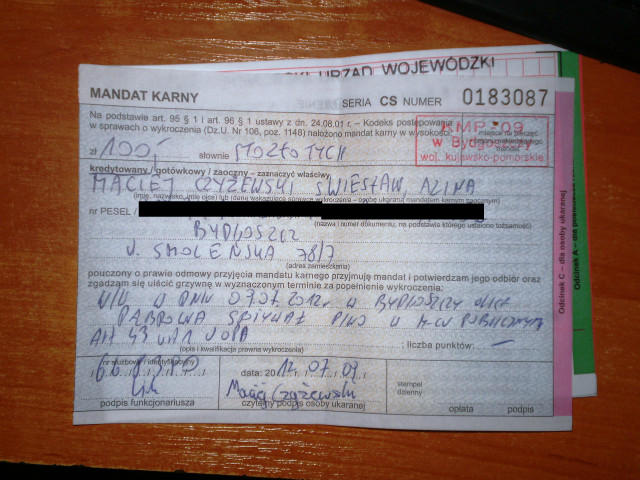 URZĄD WOJEWÓDZKI
MANDAT KARNY
SERIA CS NUMER 0183087
Na podstawie art. 95 § 1 i art. 96 § 1 ustawy z dn. 24.08.01 r. – Kodeks postępowania
w sprawach o wykroczenia (Dz.U. Nr 106, poz. 1148) nałożono mandat karny w wysokości
KMP-09
w Bydgoszczy
woj. kujawsko-pomorskie
zł 100,- słownie STO ZŁOTYCH
kredytowany / gotówkowy / zaoczny – zaznaczyć właściwy
MACIEJ CZYŻEWSKI S WIESŁAW, ALINA
(imię, nazwisko, imię ojca) lub (dane wskazujące sprawcę wykroczenia – osobę ukaraną mandatem karnym zaocznym)
nr PESEL /
BYDGOSZCZ
(nazwa i numer dokumentu, na podstawie którego ustalono tożsamość)
U. SMOLEŃSKA 78/7
(adres zamieszkania)
pouczony o prawie odmowy przyjęcia mandatu karnego przyjmuję mandat i potwierdzam jego odbiór oraz
zgadzam się uiścić grzywnę w wyznaczonym terminie za popełnienie wykroczenia:
W/W W DNIU 07.07.2012r. W BYDGOSZCZY ULICA
DĄBROWA SPIŻYWAŁ PIWO W M-CU PUBLICZNYM
ART 43 UST 1 UOPA
(opis i kwalifikacja prawna wykroczenia)
; liczba punktów: –
nr służbowy / identyfikacyjny
data: 2012.07.09
podpis funkcjonariusza
Maciej Czyżewski
czytelny podpis osoby ukaranej
stempel
dzienny
opłata
podpis
Odcinek C – dla osoby ukaranej
Odcinek A – dla